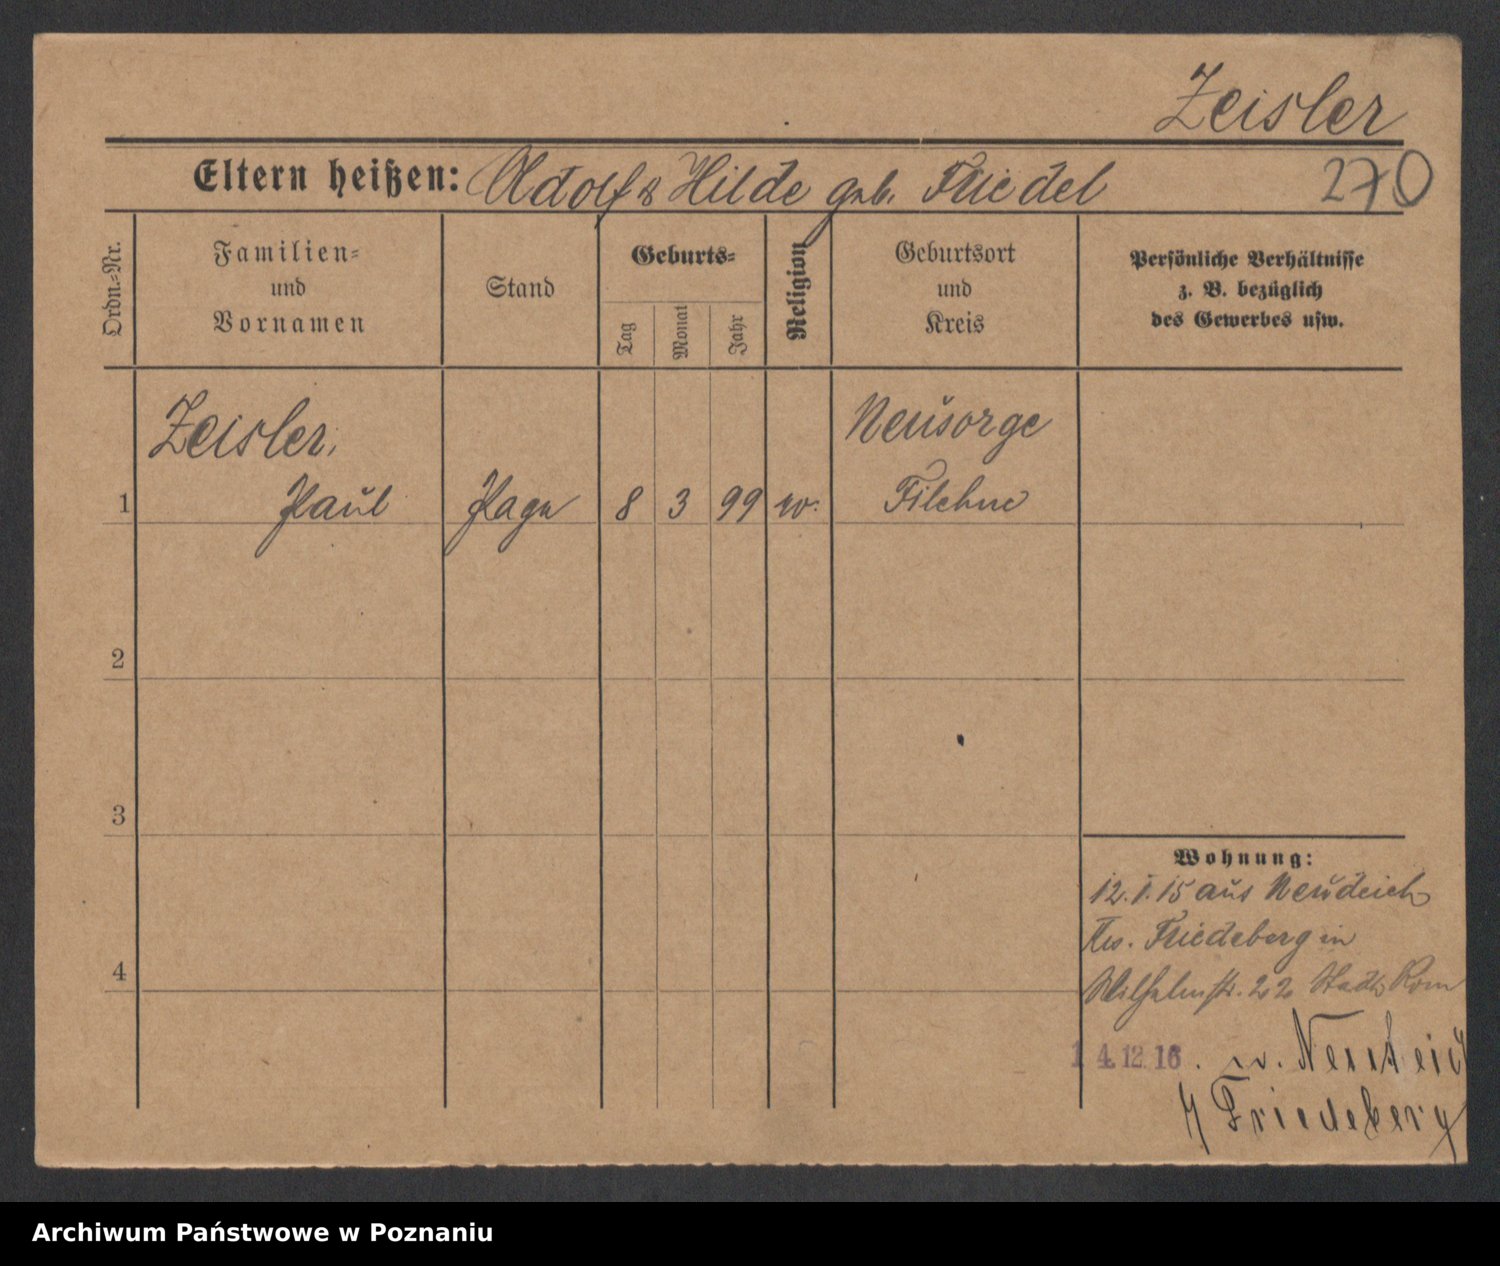 Zeisler
Eltern heißen: Adolf & Hilde geb. Friedel
270
Ordn.=Nr.
Familien=
und
Vornamen
Stand
Geburts=
Tag
Monat
Jahr
Religion
Geburtsort
und
Kreis
Persönliche Verhältnisse
z. B. bezüglich
des Gewerbes usw.
Zeisler,
Neusorge
1 Paul Page 8 3 99 ev. Filehne
2
3
4
Wohnung:
12.1.15 aus Neudeich
Krs. Friedeberg in
Wilhelmstr. 22 Stadt Rom
14.12.16. n. Neuteich
Friedeberg
Archiwum Państwowe w Poznaniu